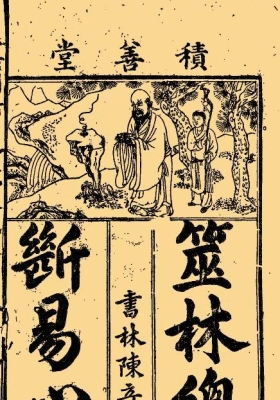 積善堂
筮林總
書林陳
斷易